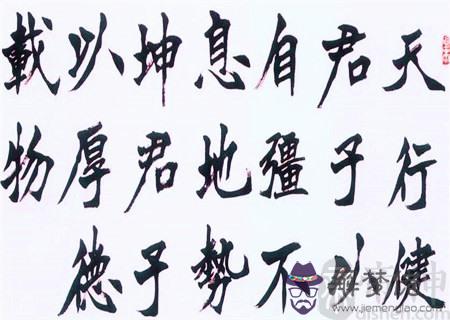 天行健
君子以
自彊不
息地勢
坤君子
以厚德
載物
www.jiemenglao.com